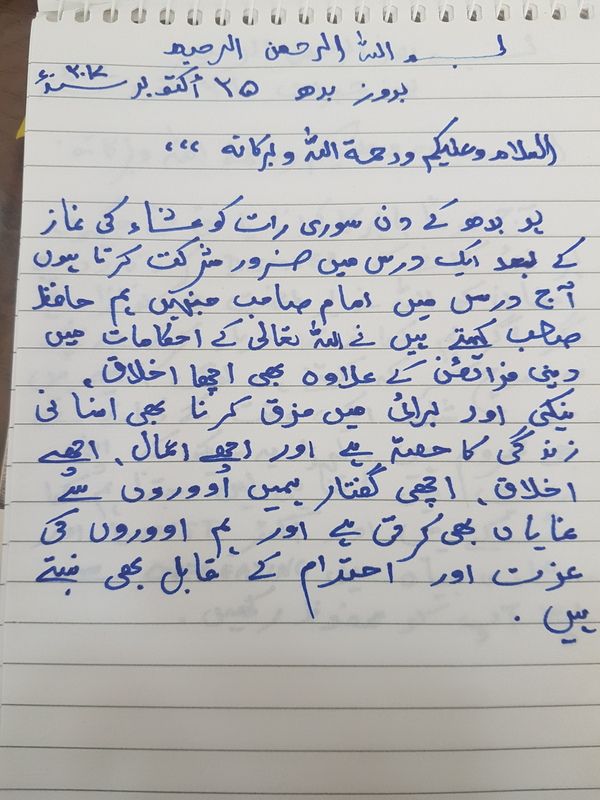 بسم اللہ الرحمن الرحیم
بروز بدھ ۲۵ أکتوبر سنۃ ۲۰۱۷ء
السلام وعلیکم ورحمۃ اللہ وبرکاتہ ،،،
ہر بدھ کے دن سوری رات کو عشاء کی نماز
کے بعد ایک درس میں ضرور شرکت کرتا ہوں
آج درس میں امام صاحب جنہیں ہم حافظ
صاحب کہتے ہیں نے اللہ تعالی کے احکامات میں
دینی فرائض کے علاوہ بھی اچھا اخلاق،
نیکی اور برائی میں فرق کرنا بھی انسانی
زندگی کا حصہ ہے اور اچھے اعمال، اچھے
اخلاق، اچھی گفتار ہمیں اُووروں سے
نمایاں بھی کرتی ہے اور ہم اووروں کی
عزت اور احترام کے قابل بھی بنتے
ہیں .